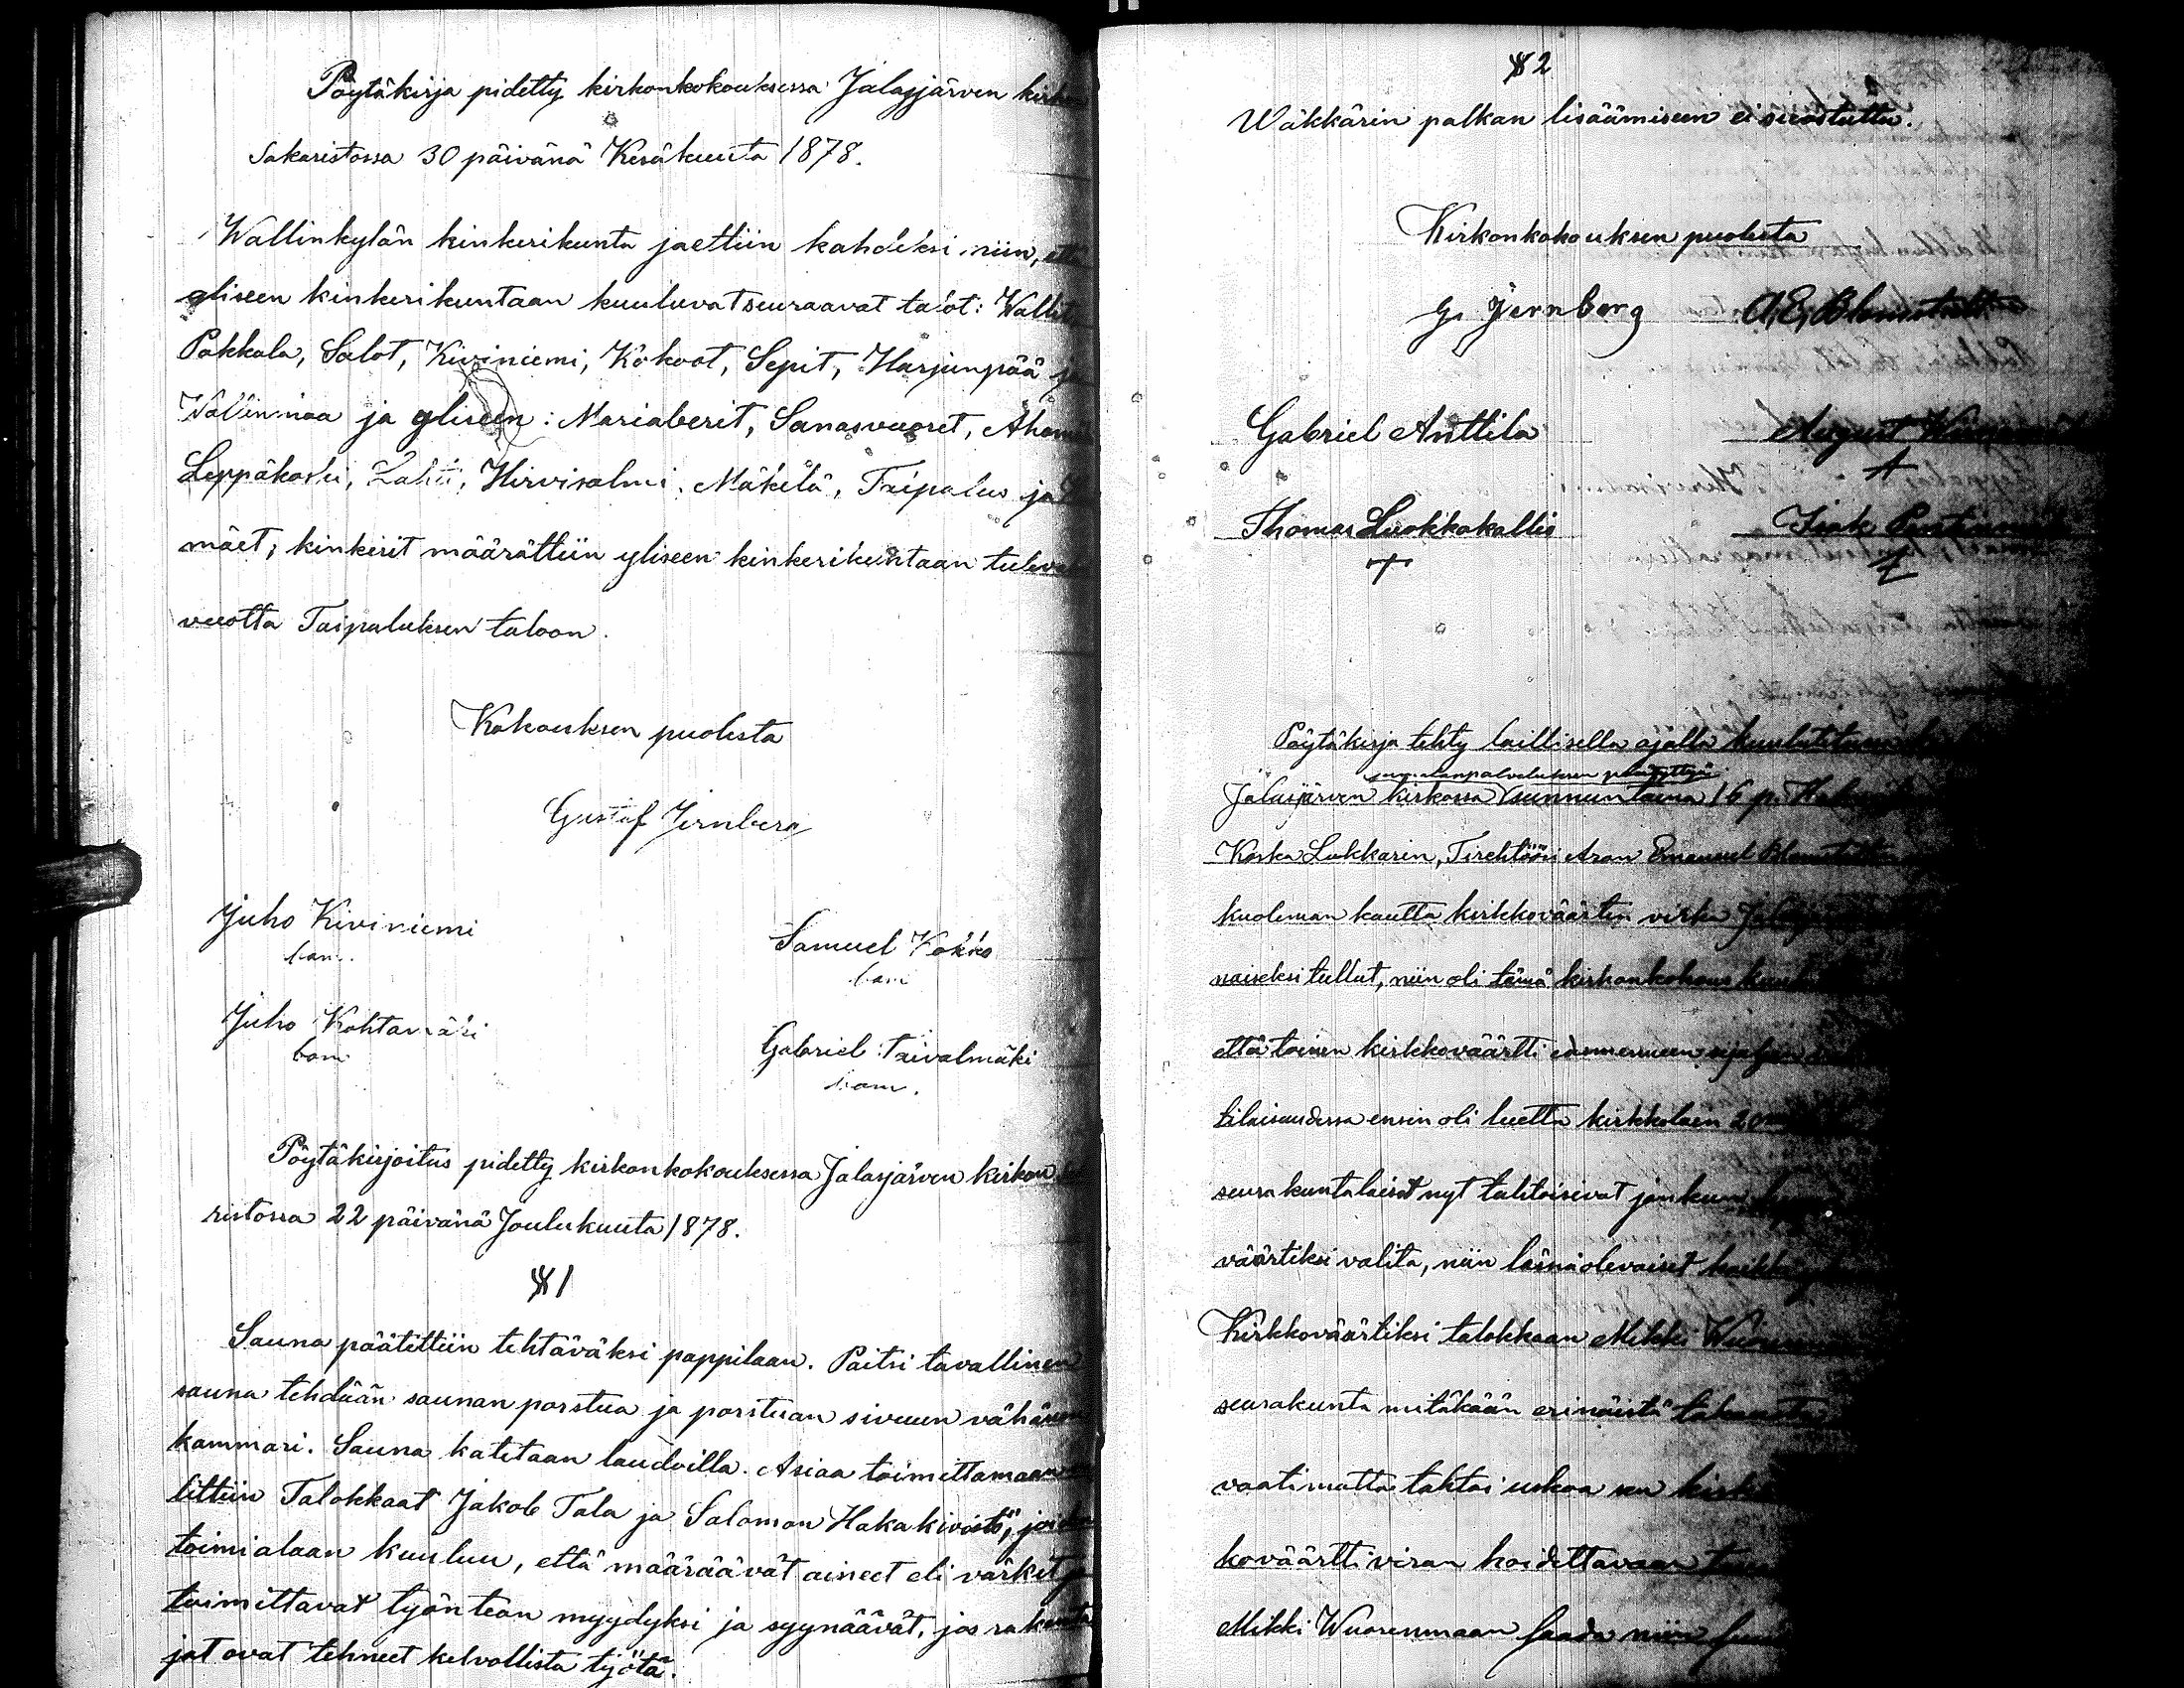 Pöytäkirja pidetty kirkonkokouksessa Jalasjärven
Sakaristossa 30 päivänä Kesäkuuta 1878.
Wallinkylän kinkerikunta jaettiin kahdeksi niin, että
yliseen kinkerikuntaan kuuluvat seuraavat talot:
Pokkala, Salot, Kiviniemi, Kokoot, Sepit, Harjunpää ja
Walinmaa ja yliseen: Mariaberit, Sanasvuoret,
Leppäkoski, Lahti, Hirvisalmi, Mäkelä, Taipalus ja
mäet; kinkerit määrättiin yliseen kinkerikuntaan
vuotta Taipaluksen taloon.
Kokouksen puolesta
Gustaf Jernberg
Juho Kiviniemi
bom.
Samuel Kokko
bom
Juho Kohtamäki
bom
Gabriel Taivalmäki
bom.
Pöytäkirjoitus pidetty kirkonkokouksessa Jalasjärven kirkon
ristossa 22 päivänä Joulukuuta 1878.
§ 1
Sauna päätettiin tehtäväksi pappilaan. Paitsi tavallinen
sauna tehdään saunan porstua ja porstuan sivuun vähänen
kammari. Sauna katetaan laudoilla. Asiaa toimittamaan
littiin Talokkaat Jakob Tala ja Salomon Hakakivistö, joiden
toimialaan kuuluu, että määräävät aineet eli värkit
toimittavat työnteon myydyksi ja syynäävät, jos rakenta
jat ovat tehneet kelvollista työtä.
§ 2
Wäkkärin palkan lisäämiseen ei suostuttu.
Kirkonkokouksen puolesta
G. Jernberg A. E. Blomstedt
Gabriel Anttila August
Thomas Luokkakallio Isak
Pöytäkirja tehty laillisella ajalla
jumalanpalveluksen päätyttyä
Jalasjärven kirkossa sunnuntaina 16 p.
Koska Lukkarin, Tirehtööri Aron Emanuel
kuoleman kautta kirkkoväärtin virka
naiseksi tullut, niin oli tämä kirkonkokous
että toinen kirkkoväärtti edesmenneen sijahan
tilaisuudessa ensin oli luettu kirkkolain
seurakuntalaiset nyt tahtoisivat jonkun
väärtiksi valita, niin läsnäolevaiset kaikki
Kirkkoväärtiksi talokkaan Mikki
seurakunta mitäkään erinäistä
vaatimatta tahtoi uskoa sen
koväärttiviran hoidettavaan
Mikki Wuorenmaan saada niin